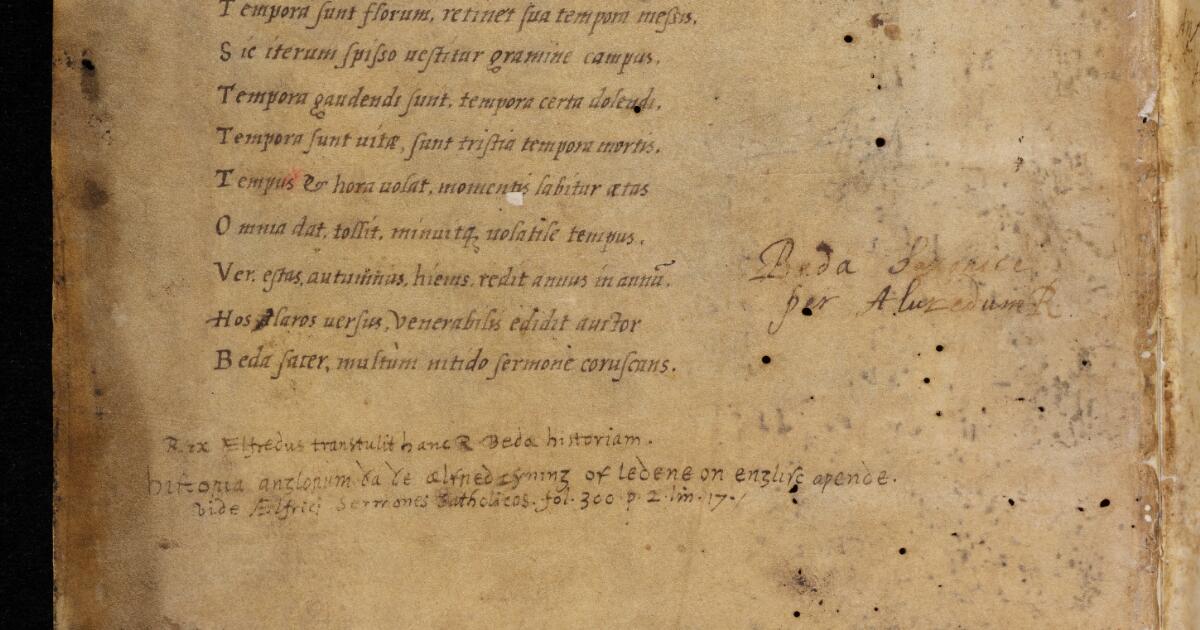 Tempora sunt florum, retinet sua tempora messis.
Sic iterum spisso uestitur gramine campus.
Tempora gaudendi sunt, tempora certa dolendi.
Tempora sunt uitæ, sunt tristia tempora mortis.
Tempus & hora uolat, momentis labitur ætas
Omnia dat, tollit, minuitq; uolatile tempus.
Ver, estas, autumnus, hiems, redit annus in annū.
Hos claros uersus, Venerabilis edidit auctor
Beda sacer, multùm nitido sermone coruscans.
Beda Saxonice
per Aluredum R
Rex Ælfredus transtulit hanc R Bedæ historiam.
historia anglorum ða ðe ælfred cyning of ledene on englisc apende.
vide Ælfrici Sermones Catholicos. fol. 300 p. 2. lin. 17.